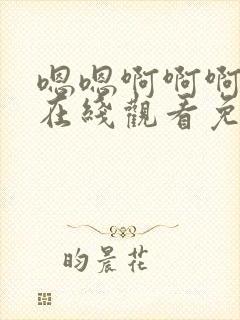 嗯嗯啊啊啊
在綫觀看免
昀晨花